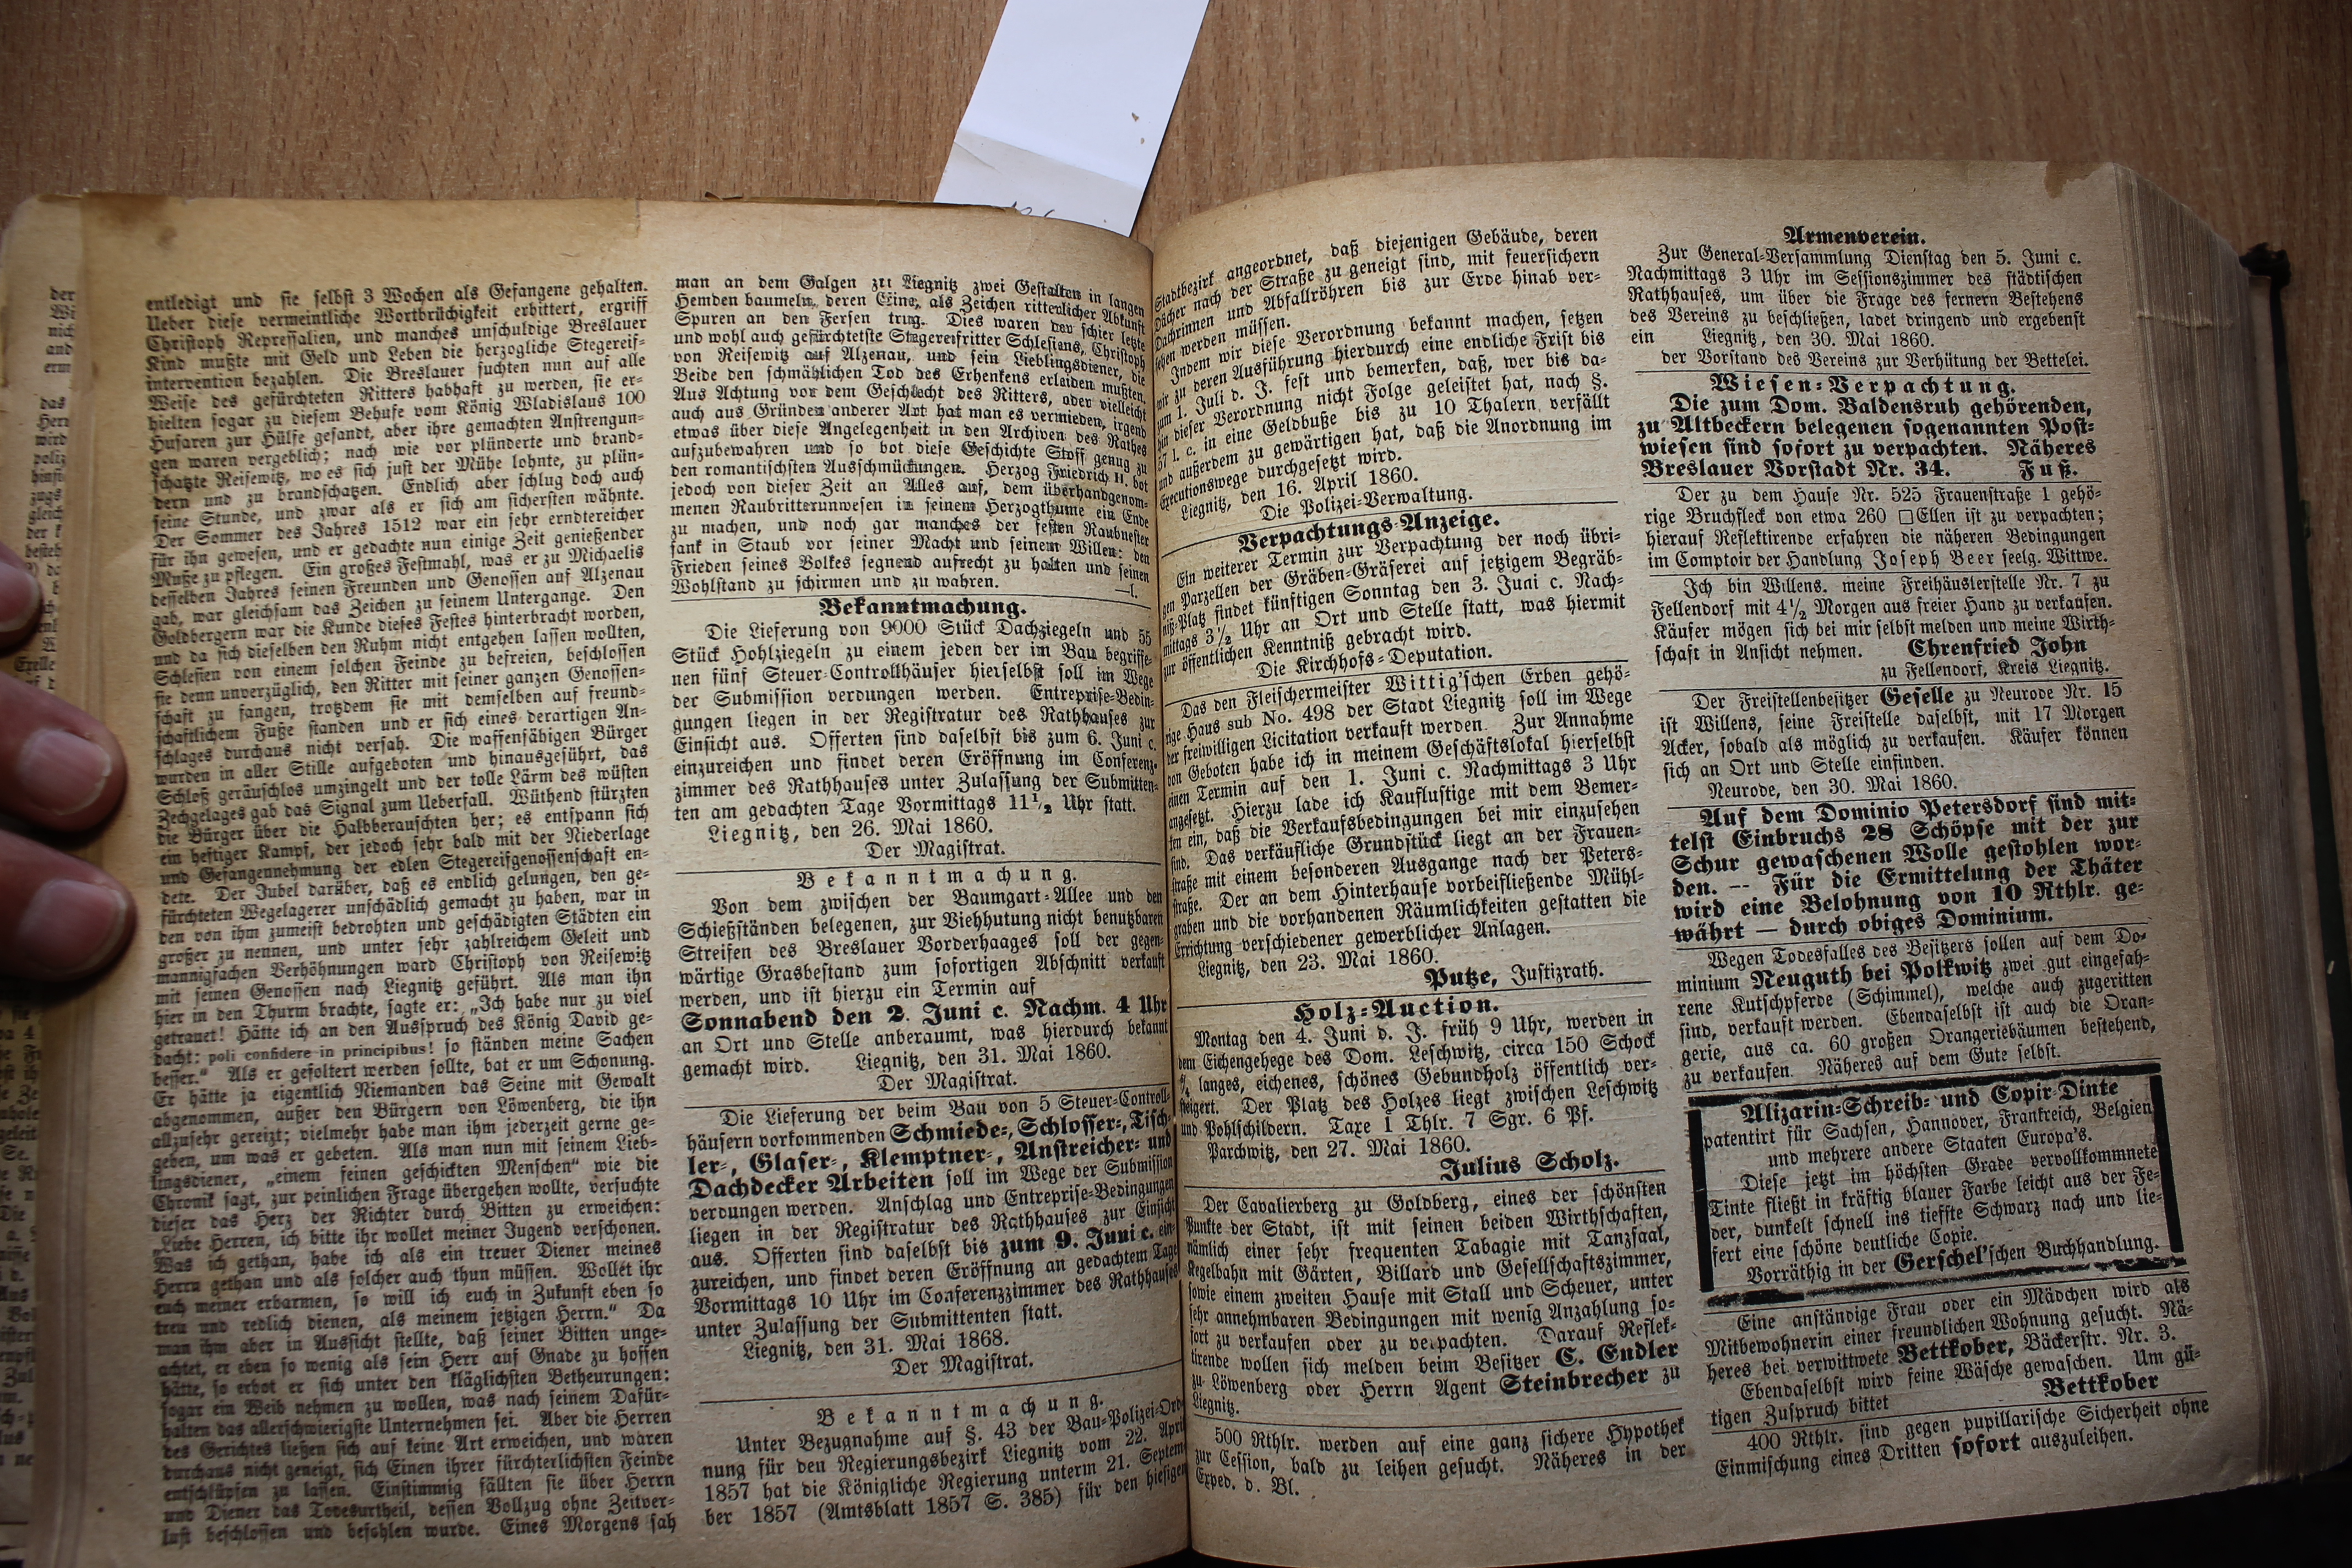 entledigt und sie selbst 3 Wochen als Gefangene gehalten.
Ueber diese vermeintliche Wortbrüchigkeit erbittert, ergriff
Christoph Repressalien, und manches unschuldige Breslauer
Kind mußte mit Geld und Leben die herzogliche Stegereif-
intervention bezahlen. Die Breslauer suchten nun auf alle
Weise des gefürchteten Ritters habhaft zu werden, sie er-
hielten sogar zu diesem Behufe vom König Wladislaus 100
Husaren zur Hülfe gesandt, aber ihre gemachten Anstrengun-
gen waren vergeblich; nach wie vor plünderte und brand-
schatzte Reisewitz, wo es sich just der Mühe lohnte, zu plün-
dern und zu brandschatzen. Endlich aber schlug doch auch
seine Stunde, und zwar als er sich am sichersten wähnte.
Der Sommer des Jahres 1512 war ein sehr erndtereicher
für ihn gewesen, und er gedachte nun einige Zeit genießender
Muße zu pflegen. Ein großes Festmahl, was er zu Michaelis
desselben Jahres seinen Freunden und Genossen auf Alzenau
gab, war gleichsam das Zeichen zu seinem Untergange. Den
Goldbergern war die Kunde dieses Festes hinterbracht worden,
und da sich dieselben den Ruhm nicht entgehen lassen wollten,
Schlesien von einem solchen Feinde zu befreien, beschlossen
sie denn unverzüglich, den Ritter mit seiner ganzen Genossen-
schaft zu fangen, trotzdem sie mit demselben auf freund-
schaftlichem Fuße standen und er sich eines derartigen An-
schlages durchaus nicht versah. Die waffenfähigen Bürger
wurden in aller Stille aufgeboten und hinausgeführt, das
Schloß geräuschlos umzingelt und der tolle Lärm des wüsten
Zechgelages gab das Signal zum Ueberfall. Wüthend stürzten
die Bürger über die Halbberauschten her; es entspann sich
ein heftiger Kampf, der jedoch sehr bald mit der Niederlage
und Gefangennehmung der edlen Stegereifgenossenschaft en-
dete. Der Jubel darüber, daß es endlich gelungen, den ge-
fürchteten Wegelagerer unschädlich gemacht zu haben, war in
den von ihm zumeist bedrohten und geschädigten Städten ein
großer zu nennen, und unter sehr zahlreichem Geleit und
mannigfachen Verhöhnungen ward Christoph von Reisewitz
mit seinen Genossen nach Liegnitz geführt. Als man ihn
hier in den Thurm brachte, sagte er: „Ich habe nur zu viel
getrauet! Hätte ich an den Ausspruch des König David ge-
dacht: poli confidere in principibus! so ständen meine Sachen
besser.“ Als er gefoltert werden sollte, bat er um Schonung.
Er hätte ja eigentlich Niemanden das Seine mit Gewalt
abgenommen, außer den Bürgern von Löwenberg, die ihn
allzusehr gereizt; vielmehr habe man ihm jederzeit gerne ge-
geben, um was er gebeten. Als man nun mit seinem Lieb-
lingsdiener, „einem feinen geschickten Menschen“ wie die
Chronik sagt, zur peinlichen Frage übergehen wollte, versuchte
dieser das Herz der Richter durch Bitten zu erweichen:
„Liebe Herren, ich bitte ihr wollet meiner Jugend verschonen.
Was ich gethan, habe ich als ein treuer Diener meines
Herrn gethan und als solcher auch thun müssen. Wollet ihr
euch meiner erbarmen, so will ich euch in Zukunft eben so
treu und redlich dienen, als meinem jetzigen Herrn.“ Da
man ihm aber in Aussicht stellte, daß seiner Bitten unge-
achtet, er eben so wenig als sein Herr auf Gnade zu hoffen
hätte, so erbot er sich unter den kläglichsten Betheurungen:
sogar ein Weib nehmen zu wollen, was nach seinem Dafür-
halten das allerschwierigste Unternehmen sei. Aber die Herren
des Gerichtes ließen sich auf keine Art erweichen, und waren
durchaus nicht geneigt, sich Einen ihrer fürchterlichsten Feinde
entschlüpfen zu lassen. Einstimmig fällten sie über Herrn
und Diener das Todesurtheil, dessen Vollzug ohne Zeitver-
lust beschlossen und befohlen wurde. Eines Morgens sah
man an dem Galgen zu Liegnitz zwei Gestalten in langen
Hemden baumeln, deren Eine, als Zeichen ritterlicher Abkunft
Spuren an den Fersen trug. Dies waren der schier letzte
und wohl auch gefürchtetste Stegereifritter Schlesiens, Christoph
von Reisewitz auf Alzenau, und sein Lieblingsdiener, die
Beide den schmählichen Tod des Erhenkens erleiden mußten.
Aus Achtung vor dem Geschlecht des Ritters, oder vielleicht
auch aus Gründen anderer Art hat man es vermieden, irgend
etwas über diese Angelegenheit in den Archiven des Rathes
aufzubewahren und so bot diese Geschichte Stoff genug zu
den romantischsten Ausschmückungen. Herzog Friedrich II. bot
jedoch von dieser Zeit an Alles auf, dem überhandgenom-
menen Raubritterunwesen in seinem Herzogthume ein Ende
zu machen, und noch gar manches der festen Raubnester
sank in Staub vor seiner Macht und seinem Willen: den
Frieden seines Volkes segnend aufrecht zu halten und seinen
Wohlstand zu schirmen und zu wahren. —l.
Bekanntmachung.
Die Lieferung von 9000 Stück Dachziegeln und 55
Stück Hohlziegeln zu einem jeden der im Bau begriffe-
nen fünf Steuer-Controllhäuser hierselbst soll im Wege
der Submission verdungen werden. Entreprise-Bedin-
gungen liegen in der Registratur des Rathhauses zur
Einsicht aus. Offerten sind daselbst bis zum 6. Juni c.
einzureichen und findet deren Eröffnung im Conferenz-
zimmer des Rathhauses unter Zulassung der Submitten-
ten am gedachten Tage Vormittags 11½ Uhr statt.
Liegnitz, den 26. Mai 1860.
Der Magistrat.
Bekanntmachung.
Von dem zwischen der Baumgart-Allee und den
Schießständen belegenen, zur Viehhutung nicht benutzbaren
Streifen des Breslauer Vorderhaages soll der gegen-
wärtige Grasbestand zum sofortigen Abschnitt verkauft
werden, und ist hierzu ein Termin auf
Sonnabend den 2. Juni c. Nachm. 4 Uhr
an Ort und Stelle anberaumt, was hierdurch bekannt
gemacht wird. Liegnitz, den 31. Mai 1860.
Der Magistrat.
Die Lieferung der beim Bau von 5 Steuer-Controll-
häusern vorkommenden Schmiede-, Schlosser-, Tisch-
ler-, Glaser-, Klemptner-, Anstreicher- und
Dachdecker Arbeiten soll im Wege der Submission
verdungen werden. Anschlag und Entreprise-Bedingungen
liegen in der Registratur des Rathhauses zur Einsicht
aus. Offerten sind daselbst bis zum 9. Juni c. ein-
zureichen, und findet deren Eröffnung an gedachtem Tage
Vormittags 10 Uhr im Conferenzzimmer des Rathhauses
unter Zulassung der Submittenten statt.
Liegnitz, den 31. Mai 1868.
Der Magistrat.
Bekanntmachung.
Unter Bezugnahme auf §. 43 der Bau-Polizei-Ord-
nung für den Regierungsbezirk Liegnitz vom 22. April
1857 hat die Königliche Regierung unterm 21. Septem-
ber 1857 (Amtsblatt 1857 S. 385) für den hiesigen
Stadtbezirk angeordnet, daß diejenigen Gebäude, deren
Dächer nach der Straße zu geneigt sind, mit feuersichern
Dachrinnen und Abfallröhren bis zur Erde hinab ver-
sehen werden müssen.
Indem wir diese Verordnung bekannt machen, setzen
wir zu deren Ausführung hierdurch eine endliche Frist bis
zum 1. Juli d. J. fest und bemerken, daß, wer bis da-
hin dieser Verordnung nicht Folge geleistet hat, nach §.
57 l. c. in eine Geldbuße bis zu 10 Thalern verfällt
und außerdem zu gewärtigen hat, daß die Anordnung im
Executionswege durchgesetzt wird.
Liegnitz, den 16. April 1860.
Die Polizei-Verwaltung.
Verpachtungs-Anzeige.
Ein weiterer Termin zur Verpachtung der noch übri-
gen Parzellen der Gräben-Gräserei auf jetzigem Begräb-
niß-Platz findet künftigen Sonntag den 3. Juni c. Nach-
mittags 3½ Uhr an Ort und Stelle statt, was hiermit
zur öffentlichen Kenntniß gebracht wird.
Die Kirchhofs-Deputation.
Das den Fleischermeister Wittig'schen Erben gehö-
rige Haus sub No. 498 der Stadt Liegnitz soll im Wege
der freiwilligen Licitation verkauft werden. Zur Annahme
von Geboten habe ich in meinem Geschäftslokal hierselbst
einen Termin auf den 1. Juni c. Nachmittags 3 Uhr
angesetzt. Hierzu lade ich Kauflustige mit dem Bemer-
ken ein, daß die Verkaufsbedingungen bei mir einzusehen
sind. Das verkäufliche Grundstück liegt an der Frauen-
straße mit einem besonderen Ausgange nach der Peters-
straße. Der an dem Hinterhause vorbeifließende Mühl-
graben und die vorhandenen Räumlichkeiten gestatten die
Errichtung verschiedener gewerblicher Anlagen.
Liegnitz, den 23. Mai 1860.
Putze, Justizrath.
Holz-Auction.
Montag den 4. Juni d. J. früh 9 Uhr, werden in
dem Eichengehege des Dom. Leschwitz, circa 150 Schock
langes, eichenes, schönes Gebundholz öffentlich ver-
steigert. Der Platz des Holzes liegt zwischen Leschwitz
und Pohlschildern. Taxe 1 Thlr. 7 Sgr. 6 Pf.
Parchwitz, den 27. Mai 1860.
Julius Scholz.
Der Cavalierberg zu Goldberg, eines der schönsten
Punkte der Stadt, ist mit seinen beiden Wirthschaften,
nämlich einer sehr frequenten Tabagie mit Tanzsaal,
Kegelbahn mit Gärten, Billard und Gesellschaftszimmer,
sowie einem zweiten Hause mit Stall und Scheuer, unter
sehr annehmbaren Bedingungen mit wenig Anzahlung so-
fort zu verkaufen oder zu verpachten. Darauf Reflek-
tirende wollen sich melden beim Besitzer C. Endler
zu Löwenberg oder Herrn Agent Steinbrecher zu
Liegnitz.
500 Rthlr. werden auf eine ganz sichere Hypothek
zur Cession, bald zu leihen gesucht. Näheres in der
Exped. d. Bl.
Armenverein.
Zur General-Versammlung Dienstag den 5. Juni c.
Nachmittags 3 Uhr im Sessionszimmer des städtischen
Rathhauses, um über die Frage des fernern Bestehens
des Vereins zu beschließen, ladet dringend und ergebenst
ein Liegnitz, den 30. Mai 1860.
der Vorstand des Vereins zur Verhütung der Bettelei.
Wiesen-Verpachtung.
Die zum Dom. Baldensruh gehörenden,
zu Altbeckern belegenen sogenannten Post-
wiesen sind sofort zu verpachten. Näheres
Breslauer Vorstadt Nr. 34. Fuß.
Der zu dem Hause Nr. 525 Frauenstraße 1 gehö-
rige Bruchfleck von etwa 260 □Ellen ist zu verpachten;
hierauf Reflektirende erfahren die näheren Bedingungen
im Comptoir der Handlung Joseph Beer seelg. Wittwe.
Ich bin Willens. meine Freihäuslerstelle Nr. 7 zu
Fellendorf mit 4½ Morgen aus freier Hand zu verkaufen.
Käufer mögen sich bei mir selbst melden und meine Wirth-
schaft in Ansicht nehmen. Ehrenfried John
zu Fellendorf, Kreis Liegnitz.
Der Freistellenbesitzer Geselle zu Neurode Nr. 15
ist Willens, seine Freistelle daselbst, mit 17 Morgen
Acker, sobald als möglich zu verkaufen. Käufer können
sich an Ort und Stelle einfinden.
Neurode, den 30. Mai 1860.
Auf dem Dominio Petersdorf sind mit-
telst Einbruchs 28 Schöpse mit der zur
Schur gewaschenen Wolle gestohlen wor-
den. -- Für die Ermittelung der Thäter
wird eine Belohnung von 10 Rthlr. ge-
währt — durch obiges Dominium.
Wegen Todesfalles des Besitzers sollen auf dem Do-
minium Neuguth bei Polkwitz zwei gut eingefah-
rene Kutschpferde (Schimmel), welche auch zugeritten
sind, verkauft werden. Ebendaselbst ist auch die Oran-
gerie, aus ca. 60 großen Orangeriebäumen bestehend,
zu verkaufen. Näheres auf dem Gute selbst.
Alizarin-Schreib- und Copir-Dinte
patentirt für Sachsen, Hannover, Frankreich, Belgien
und mehrere andere Staaten Europa's.
Diese jetzt im höchsten Grade vervollkommnete
Tinte fließt in kräftig blauer Farbe leicht aus der Fe-
der, dunkelt schnell ins tieffte Schwarz nach und lie-
fert eine schöne deutliche Copie.
Vorräthig in der Gerschel'schen Buchhandlung.
Eine anständige Frau oder ein Mädchen wird als
Mitbewohnerin einer freundlichen Wohnung gesucht. Nä-
heres bei verwittwete Bettkober, Bäckerstr. Nr. 3.
Ebendaselbst wird feine Wäsche gewaschen. Um gü-
tigen Zuspruch bittet Bettkober
400 Rthlr. sind gegen pupillarische Sicherheit ohne
Einmischung eines Dritten sofort auszuleihen.